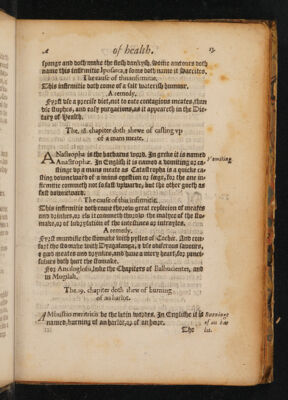 of health. 13
spange and doth make the flesh dankysh. Some auctours doth
name this infirmitie Iposarca, & some doth name it
The cause of this infirmitie.
This infirmitie doth come of a salt waterish humour.
A remedy.
Fyrst use a precise diet, not to eate contagious meates, than
use stuphes, and easy purgacions, as it appeareth in the Die-
tary of Health.
The .18. chapiter doth shewe of casting vp
of a mans meate.
is the barbarus word. In greke it is named
Anastrophe. In English it is named a vomiting or ca-
stinge vp a mans meate as Catastropha is a quicke ca-
sting downewarde of a mans egestion or siege, for the one in-
firmitie commeth not so fast upwarde, but the other goeth as
fast downewarde.
Vomiting.
The cause of this infirmitie.
This infirmitie doth come thorow great repletion of meates
and drinkes, or els it commeth thorow the malice of the sto-
make, or of indygestion of the intestines or intrayles.
A remedy.
Fyrst mundifie the stomake with pylles of Cochie. And con-
fort the stomake with Dyagalanga, & use odiferous savours,
& good meates and drynkes, and have a mery heart, for punc-
tulives doth hurt the stomake.
For Anciloglossi, loke the Chapiters of Balbucientes, and
in Mogilali.
The .19. chapiter doth shew of burning
of an harlot.
meretricis be the latin wordes. In Englishe it is
named, burning of an harlot, or of an hoore.
Burninge
of an har
lit.
The